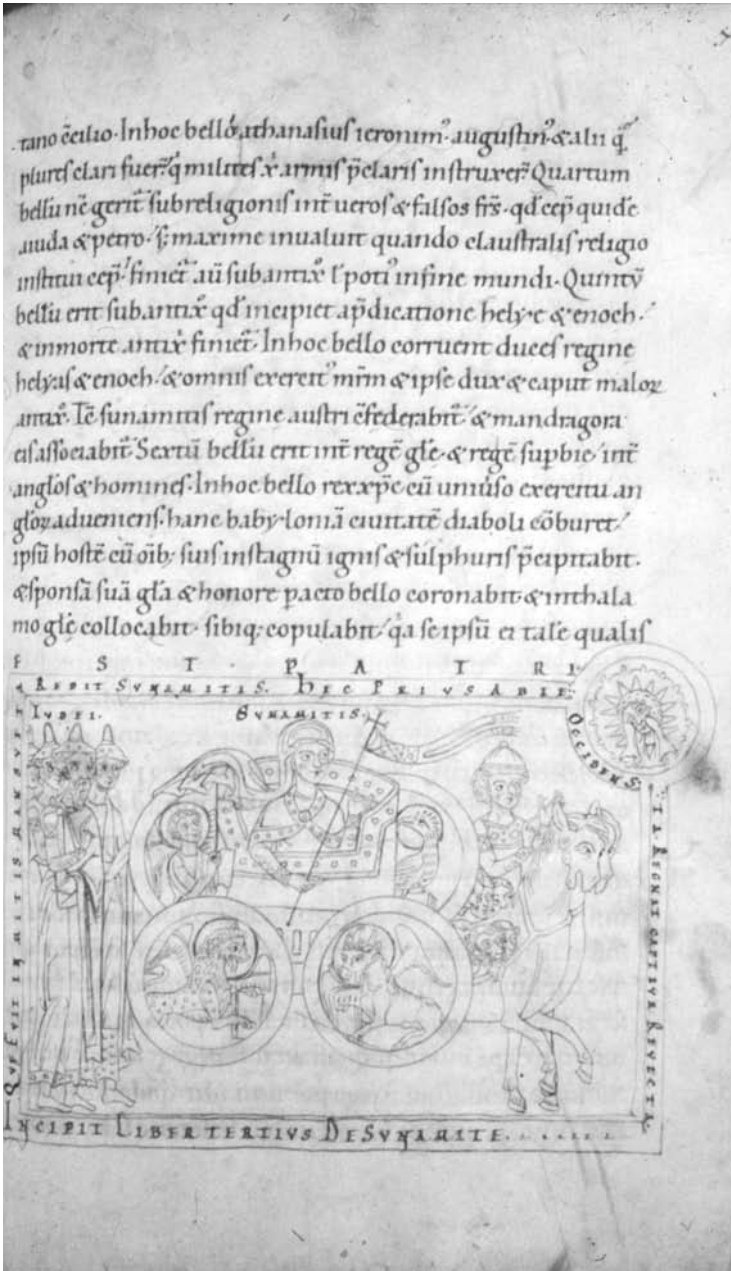 tano c̄cilio· In hoc bello athanasius ieronim᷒· augustin᷒· & alii q̄
plures clari fuer̄ q̇ milites x̓ armis p̄claris instruxer̄ Quartum
bellū nc̄ gerit᷑ sub religionis int̄ ueros & falsos fr̄s· qd̓ cep̄ quidē
a iuda & petro· s; maxime inualuit quando claustralis religio
institui cep̄· finiet᷑ aū sub antix̓ l̓ poti᷒ in fine mundi· Quintū
bellū erit sub antix̓ qd̓ incipiet a p̄dicatione hely·e & enoch·
& in morte antix̓ finiet᷑· In hoc bello corruent duces regine
helyas & enoch· & omnis exercit᷒ mr̄m & ipse dux & caput maloꝝ
antix̓· Tc̄ sunamitis regine austri c̄federabit᷑ & mandragora
eis associabit᷑· Sextū bellū erit int̄ regē gl̄e· & regē supbie· int̄
anglos & homines· In hoc bello rex xp̄c cū uniu̓so exercitu an
gloꝝ adueniens· hanc baby·loniā ciuitatē diaboli cōburet·
ipsū hostē cū oīb; suis in stagnū ignis & sulphuris p̄cipitabit·
& sponsā suā gl̄a & honore pacto bello coronabit· & in thala
mo gl̄e collocabit· sibiq; copulabit· q̇a se ipsū ei tale qualis
EST· PATRI·
REDIT SUNAMITIS· HEC PRIUS ABIE
IUDEI·
SUNAMITIS·
OCCIDENS·
QUE FUIT INMITIS MANSUET
REGNET CAPTIUA REUECTA·
INCIPIT LIBER TERTIUS DE SUNAMITE·